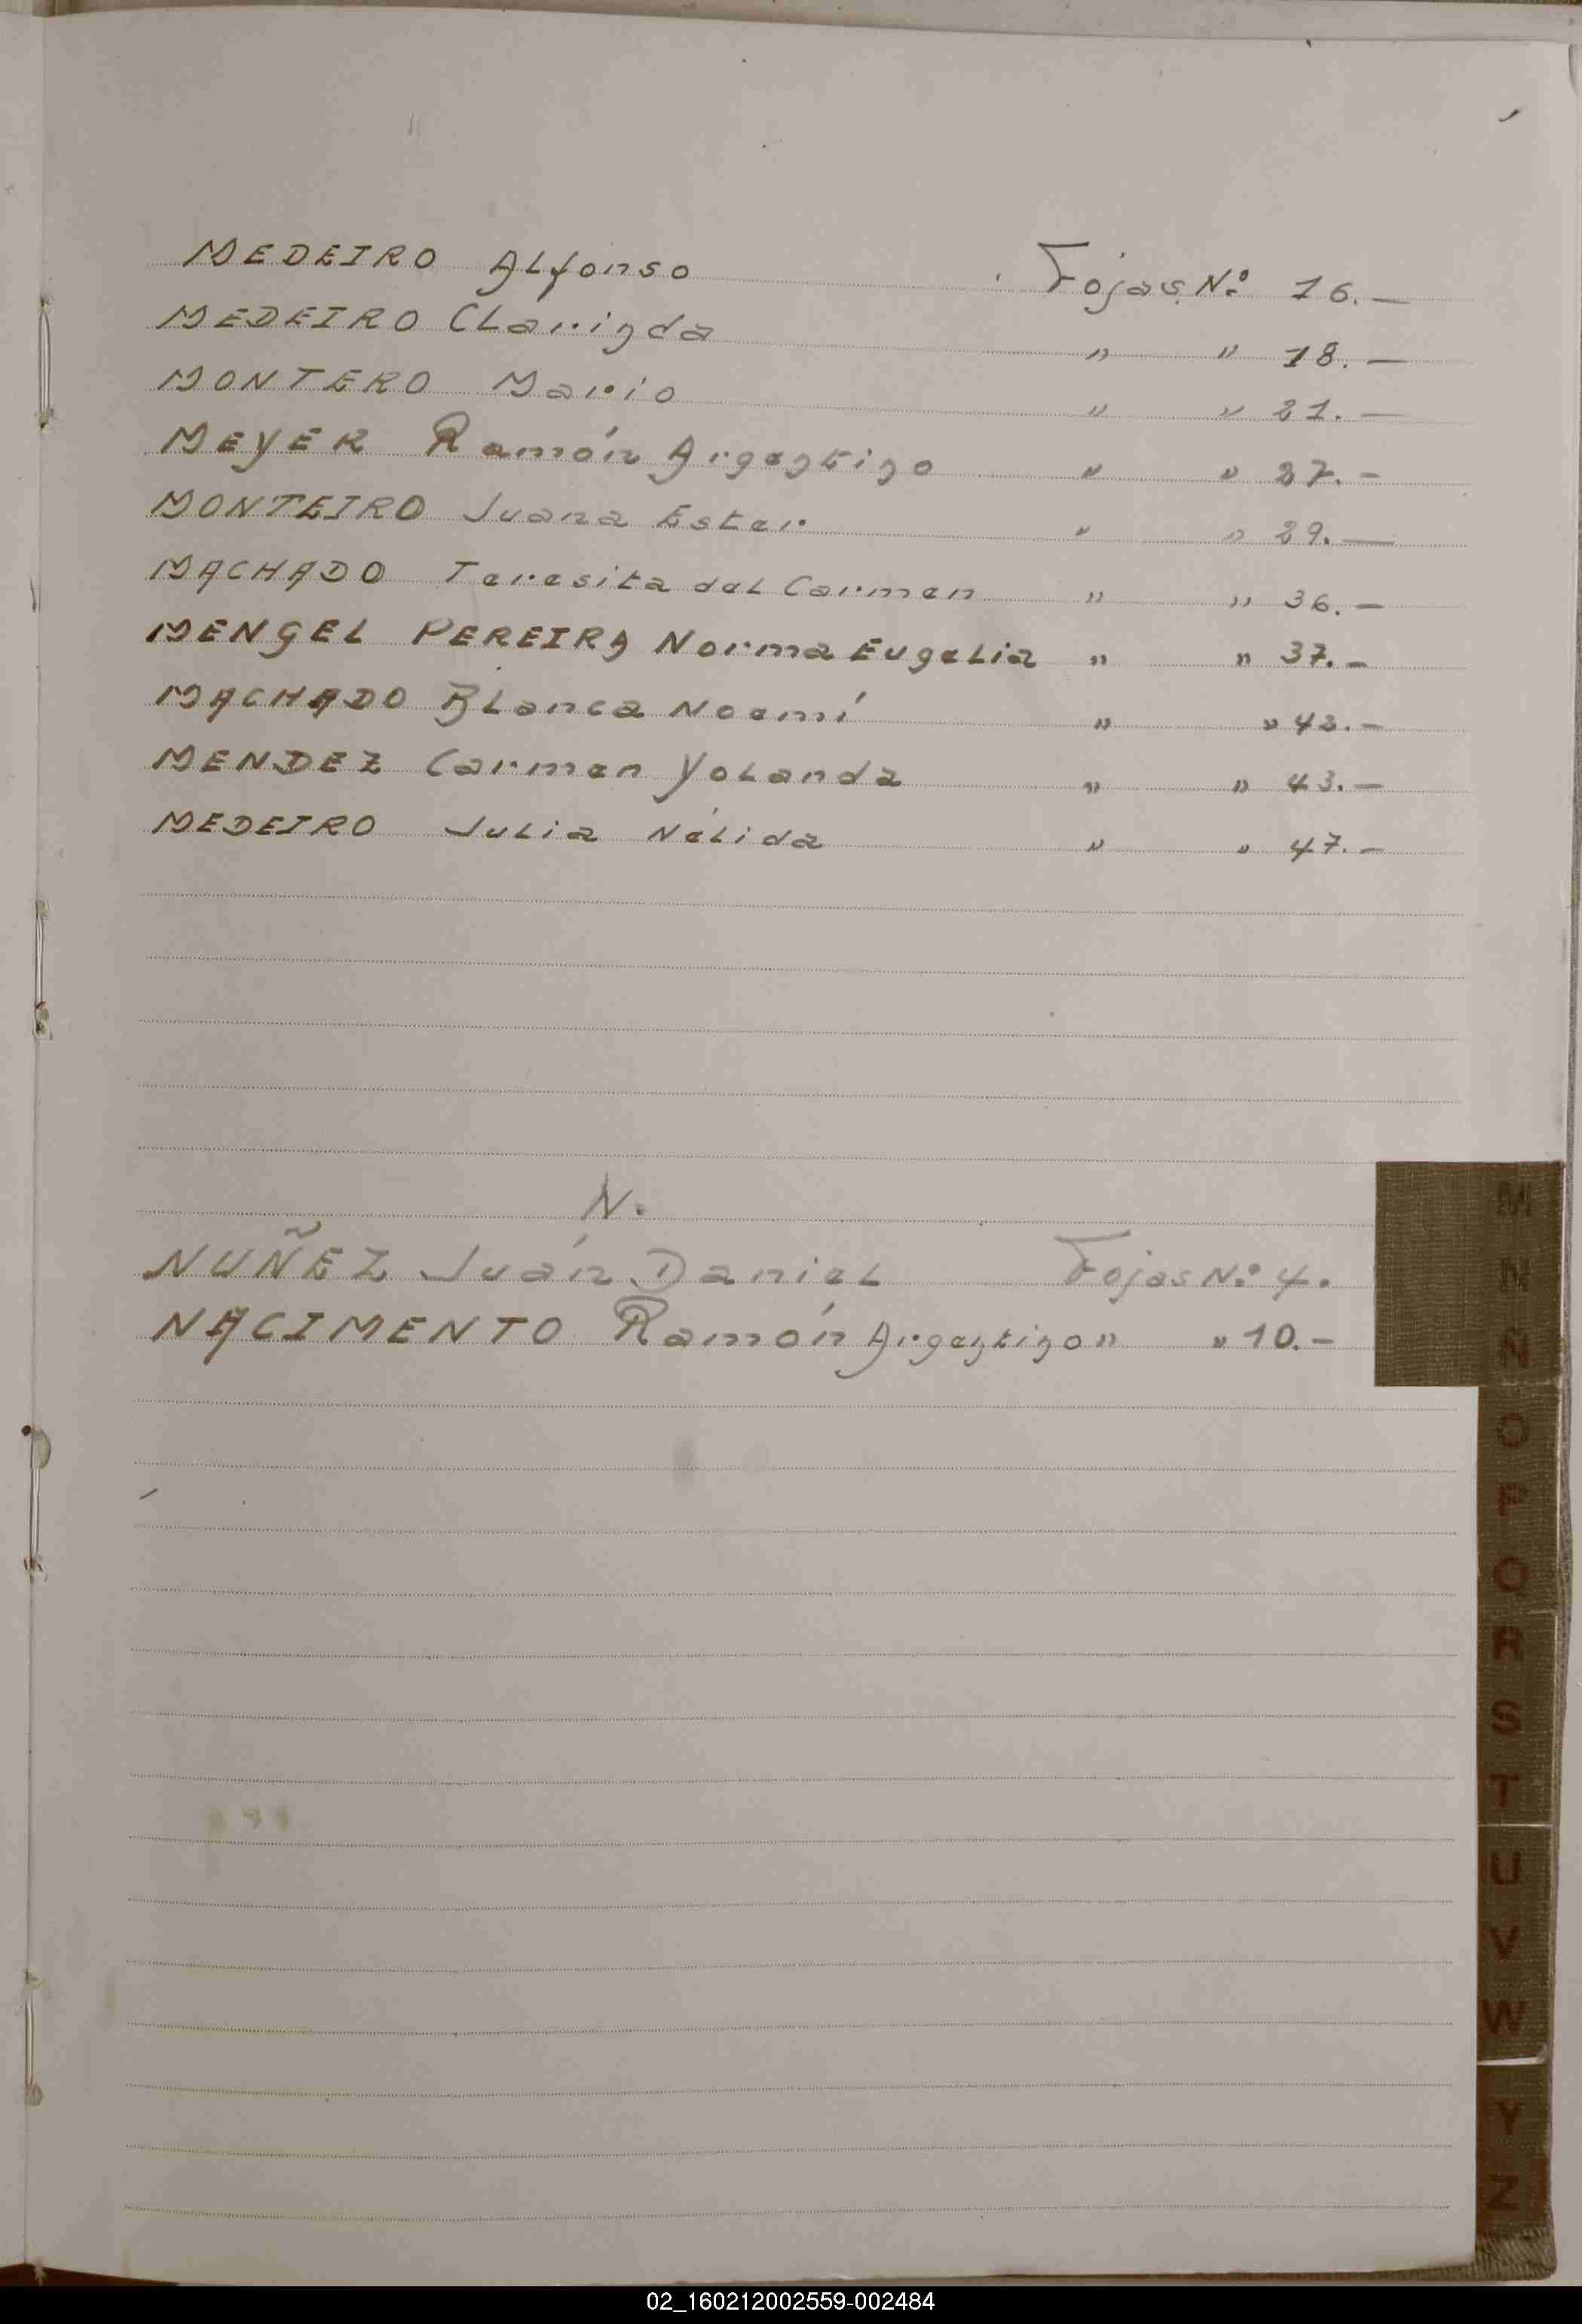 MEDEIRO Alfonso Fojas Nº 16.—
MEDEIRO Clarinda " " 18.—
MONTERO Mario " " 21.—
MEYER Ramón Argentino " " 27.—
MONTEIRO Juana Ester " " 29.—
MACHADO Teresita del Carmen " " 36.—
MENGEL PEREIRA Norma Eugelia " " 37.—
MACHADO Blanca Noemí " " 42.—
MENDEZ Carmen Yolanda " " 43.—
MEDEIRO Julia Nélida " " 47.—
N.
NUÑEZ Juán Daniel Fojas Nº 4.
NACIMENTO Ramón Argentino " " 10.—
M
N
Ñ
O
P
Q
R
S
T
U
V
W
Y
Z
02_160212002559-002484